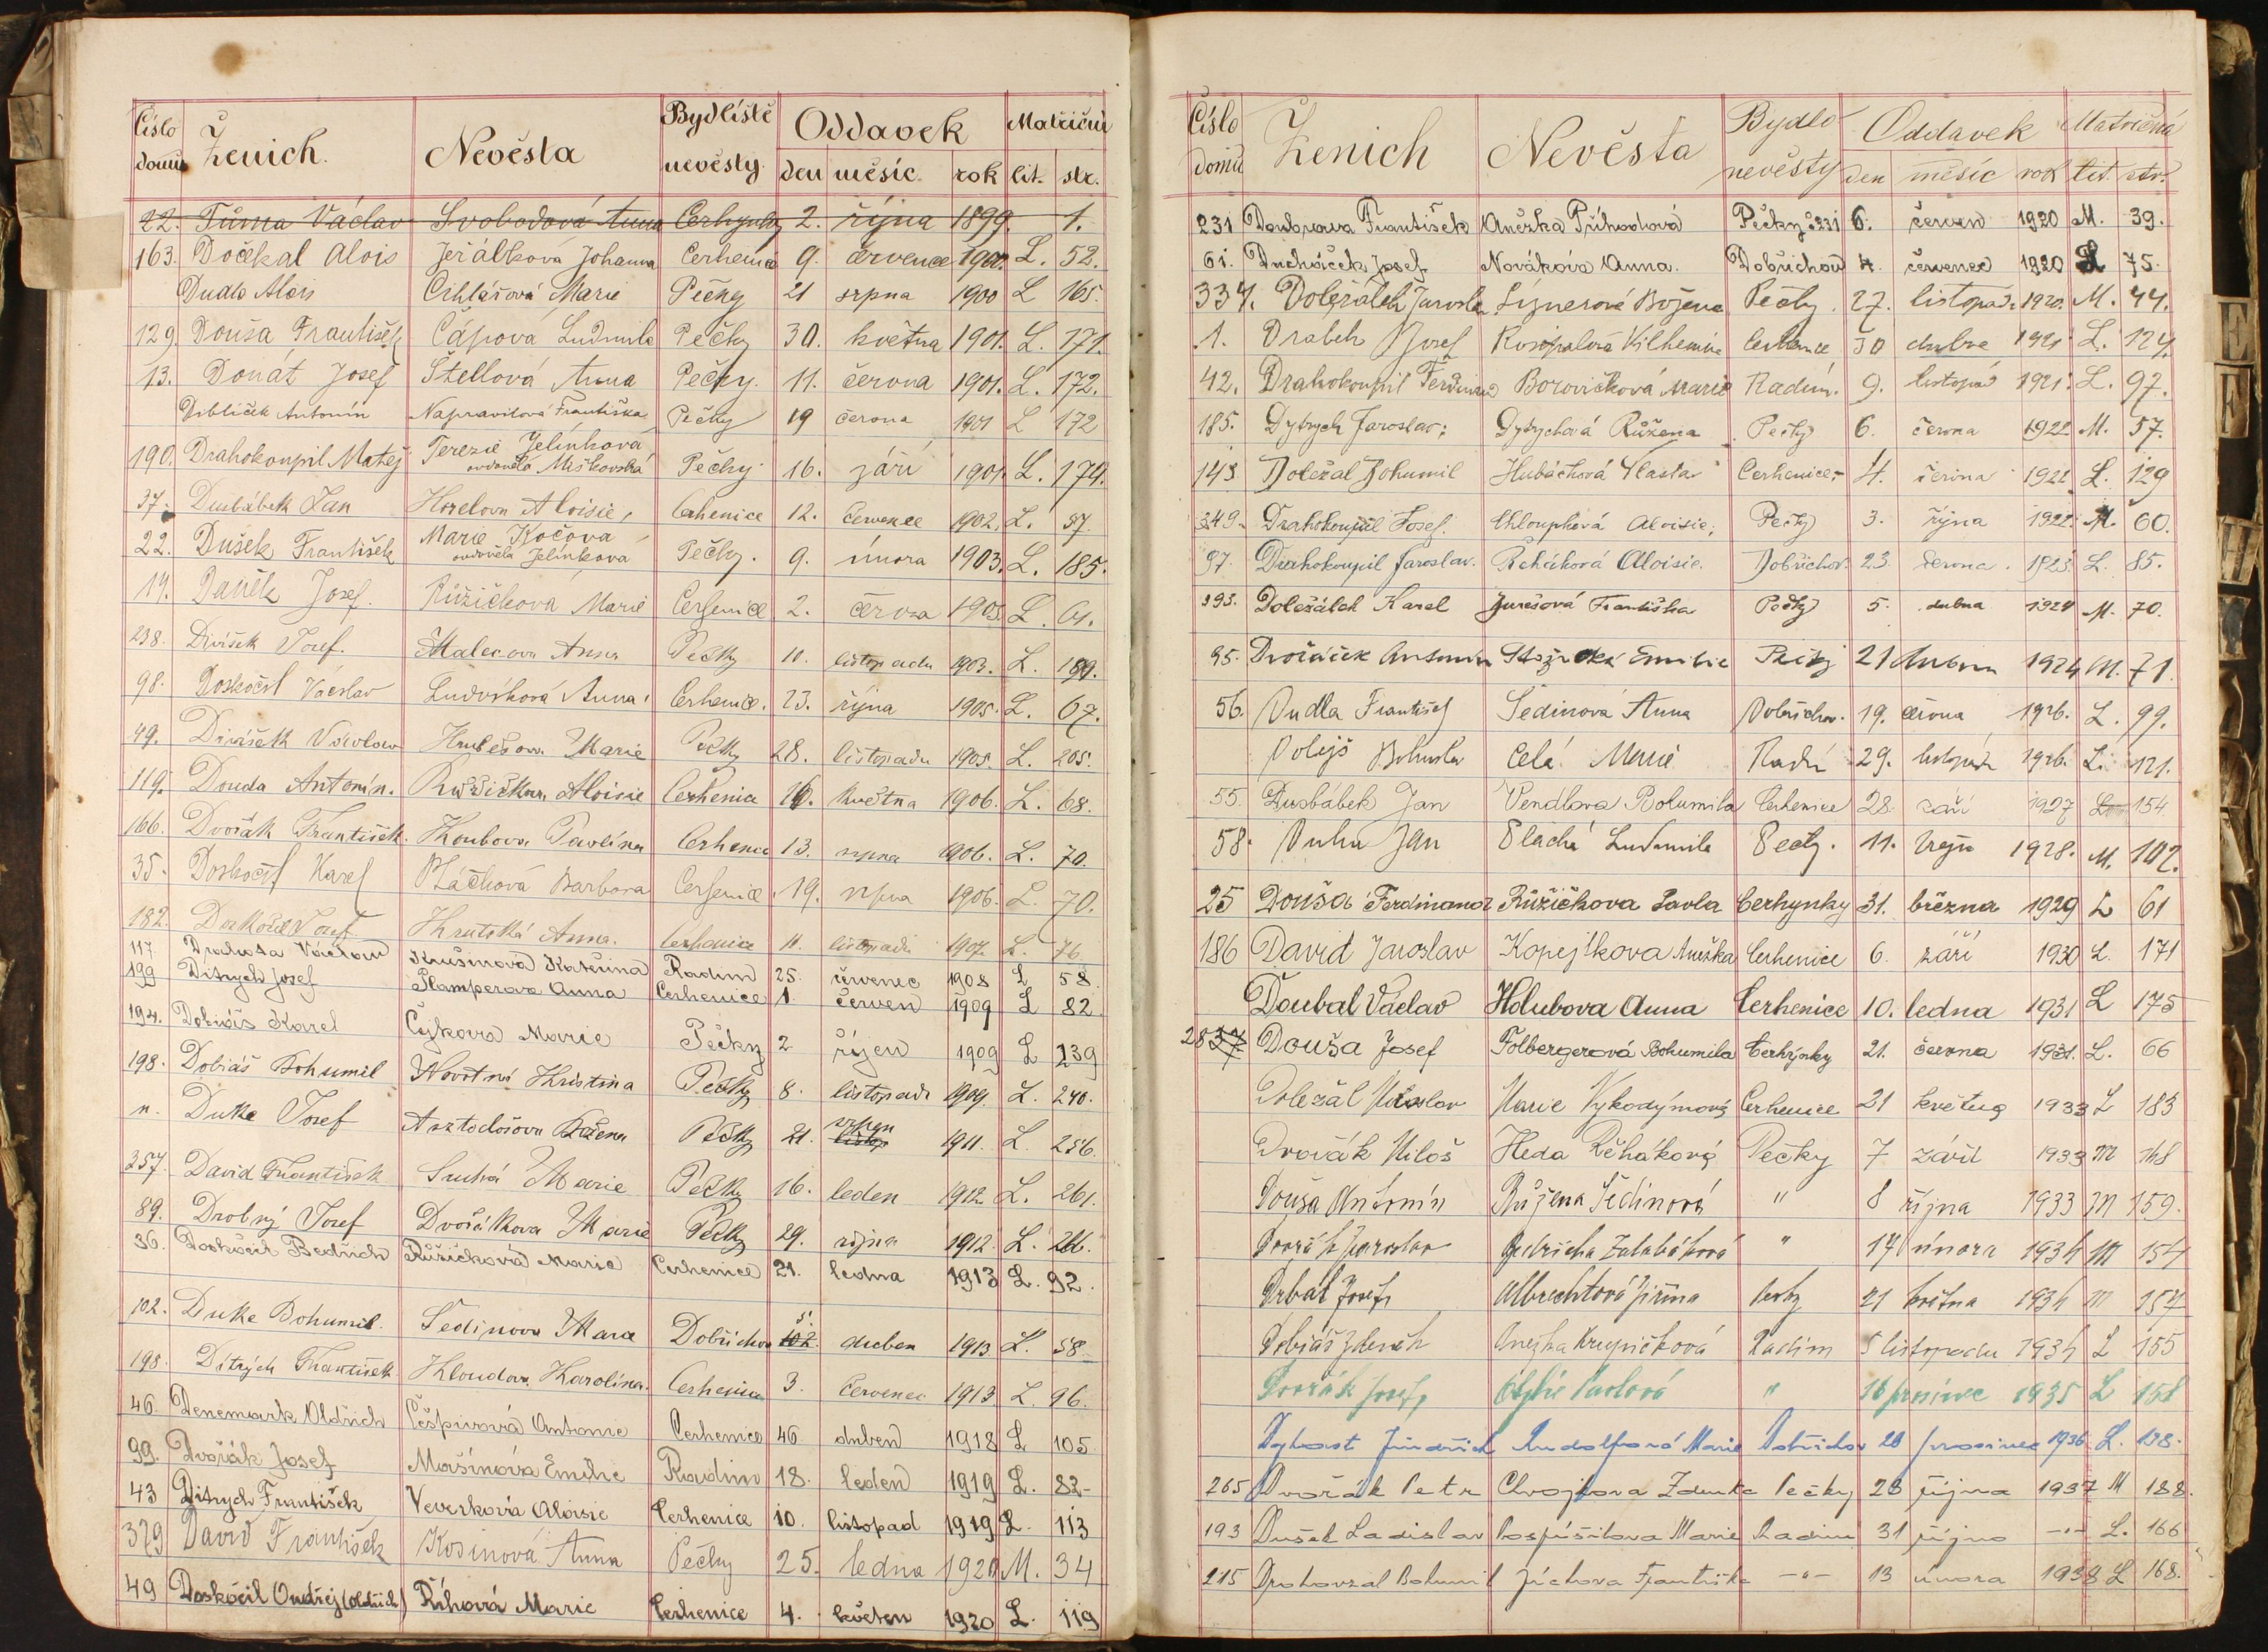 Číslo domu Ženich. Nevěsta Bydliště nevěsty. Oddavek Matriční
den měsíc. rok lit. str.
22. Tůma Václav Svobodová Anna Cerhynky 2. října 1899. 1.
163. Dočekal Alois Jeřábková Johanna Cerhenice 9. července 1900. L. 52.
Dudlo Alois Cihlářová Marie Pečky 21 srpna 1900 L 165.
129. Douša František Čápová Ludmila Pečky 30. května 1901. L. 171.
13. Donát Josef Štellová Anna Pečky. 11. června 1901. L. 172.
Doblíček Antonín Napravilová Františka Pečky 19 června 1901 L 172
190. Drahokoupil Matěj Terezie Jelínková ovdovělá Miškovská Pečky 16. září 1901. L. 174.
37. Dusbábek Jan Aloisie, Cerhenice 12. Července 1902. L. 57.
22. Dušek František Marie Kočova ovdověla Jelínkova Pečky. 9. února 1903. L. 185.
19. Daněk Josef. Růžičkova Marie Cerhenice 2. června 1903. L. 61.
238. Divíšek Josef. Malecova Anna Pečky 10. listopadu 1903. L. 189.
98. Doskočil Václav Ludvíková Anna. Cerhenice. 23. října 1905. L. 67.
49. Divíšek Václav Hrubešova Marie Pečky 28. listopadu 1905. L. 205.
119. Douda Antonín. Růžičkova Aloisie Cerhenice 10. května 1906. L. 68.
166. Dvořák František. Koubova Pavlína Cerhenice 13. srpna 1906. L. 70.
35. Doskočil Karel Ptáčková Barbora Cerhenice 19. srpna 1906. L. 70.
182. Doskočil Josef Hrutská Anna. Cerhenice 11. listopadu 1907. L. 76.
117. Drahota Václav Krušinová Kateřina Radim 25. červenec 1908 L 58.
199 Ditrych Josef Šlamperova Anna Cerhenice 1. červen 1909 L 82.
194. Dobiáš Karel Čejkova Marie Pečky 2 říjen 1909 L 239
198. Dobiáš Bohumil Novotná Kristina Pečky 8. listopadu 1909. L. 240.
n. Duke Josef Božena Pečky 21. srpen 1911. L. 256.
357. David František Suchá Marie Pečky 16. leden 1912. L. 261.
89. Drobný Josef Dvořákova Marie Pečky 29. října 1912. L. 266.
36. Doskočil Bedřich Růžičková Marie Cerhenice 21. ledna 1913 L. 92.
102. Duke Bohumil. Šedinova Marie Dobřichov 102. 5. duben 1913 L. 58
198. Ditrych František Kloudova Karolina. Cerhenice 3. červenec 1913. L. 96.
46. Denemark Oldřich Češpurová Antonie Cerhenice 46 duben 1918 L 105
99. Dvořák Josef Mašínová Emilie Radim 18. leden 1919 L. 82-
43 Ditrych František Veverková Aloisie Cerhenice 10. listopad 1919 L. 113
379 David František Kosinová Anna Pečky 25. ledna 1920 M. 34
49 Doskočil Ondřej (Oldřich) Říhová Marie Cerhenice 4. květen 1920 L. 119
Číslo domu Ženich Nevěsta Bydlo nevěsty Oddavek Matričná
den měsíc rok lit. str.
231 Doubrava František Anežka Příhodová Pečky č 231 6. červen 1920 M. 39.
61. Ducháček Josef Nováková Anna. Dobřichov 4. červenec 1920 L 75.
334. Doležálek Jarosla Lígnerová Božena Pečky. 27. listopad. 1920. M. 44.
1. Drábek Josef Rosípalová Vilhemína Cerhenice 30 dubna 1921. L. 124.
42. Drahokoupil Ferdinand Borovičková Marie Radim. 9. listopad 1921. L. 97.
185. Dytrych Jaroslav; Dytrychová Růžena Pečky 6. června 1922 M. 57.
143 Doležal Bohumil Hubáčková Vlasta Cerhenice 4. června 1922 L. 129
349. Drahokoupil Josef. Chloupková Aloisie, Pečky 3. října 1922. M. 60.
97. Drahokoupil Jaroslav. Řeháková Aloisie. Dobřichov. 23. června. 1923. L. 85.
393. Doležálek Karel Jurešová Františka Pečky 5. dubna 1924 M. 70.
95. Dvořáček Antonín Emilie Pečky 21 dubna 1924 M. 71.
56. Dudla František Šedinová Anna Dobřichov. 19. června 1926. L. 99.
Dolejš Bohusla Celá Marie Radim 29. listopad 1926. L. 121.
55. Dusbábek Jan Vendlova Bohumila Cerhenice 28. září 1927 L. 154.
58. Duha Jan Plachá Ludmila Pečky. 11. 1928. M. 102.
25 Douša Ferdinand Růžičkova Pavla Cerhynky 31. března 1929 L 61
186 David Jaroslav Kopejtkova Anežka Cerhenice 6. září 1930 L. 171
Doubal Václav Holubova Anna Cerhenice 10. ledna 1931 L 175
28 37 Douša Josef Folbergerová Bohumila Cerhýnky 21. června 1931. L. 66
Doležal Miloslav Marie Vykodýmová Cerhenice 21 května 1933 L 183
Dvořák Miloš Heda Řeháková Pečky 7 září 1933 M 148
Douša Antonín Růžena Šedinová " 8 října 1933 M 159.
Dvořák Jaroslav Bedřicha Zalabáková " 17 února 1934 M 154
Drbal Josef Albrechtová Jiřina Pečky 21 května 1934 M 157
Dobiáš Zdeněk Anežka Krupičková Radim 5 listopadu 1934 L 155
Dvořák Josef, Otylie Pavlová " 16 prosince 1935 L 158
Dyhost Jindřich Rudolfová Marie Dobřichov 28 prosinec 1936 L. 138.
265 Dvořák Petr Chvojkova Zdenka Pečky 28 října 1937 M 188.
193 Dušek Ladislav Pospíšilova Marie Radim 31 října -"- L. 166
215 Drahovzal Bohumil Jíchova Františka -"- 13 února 1938 L 168.